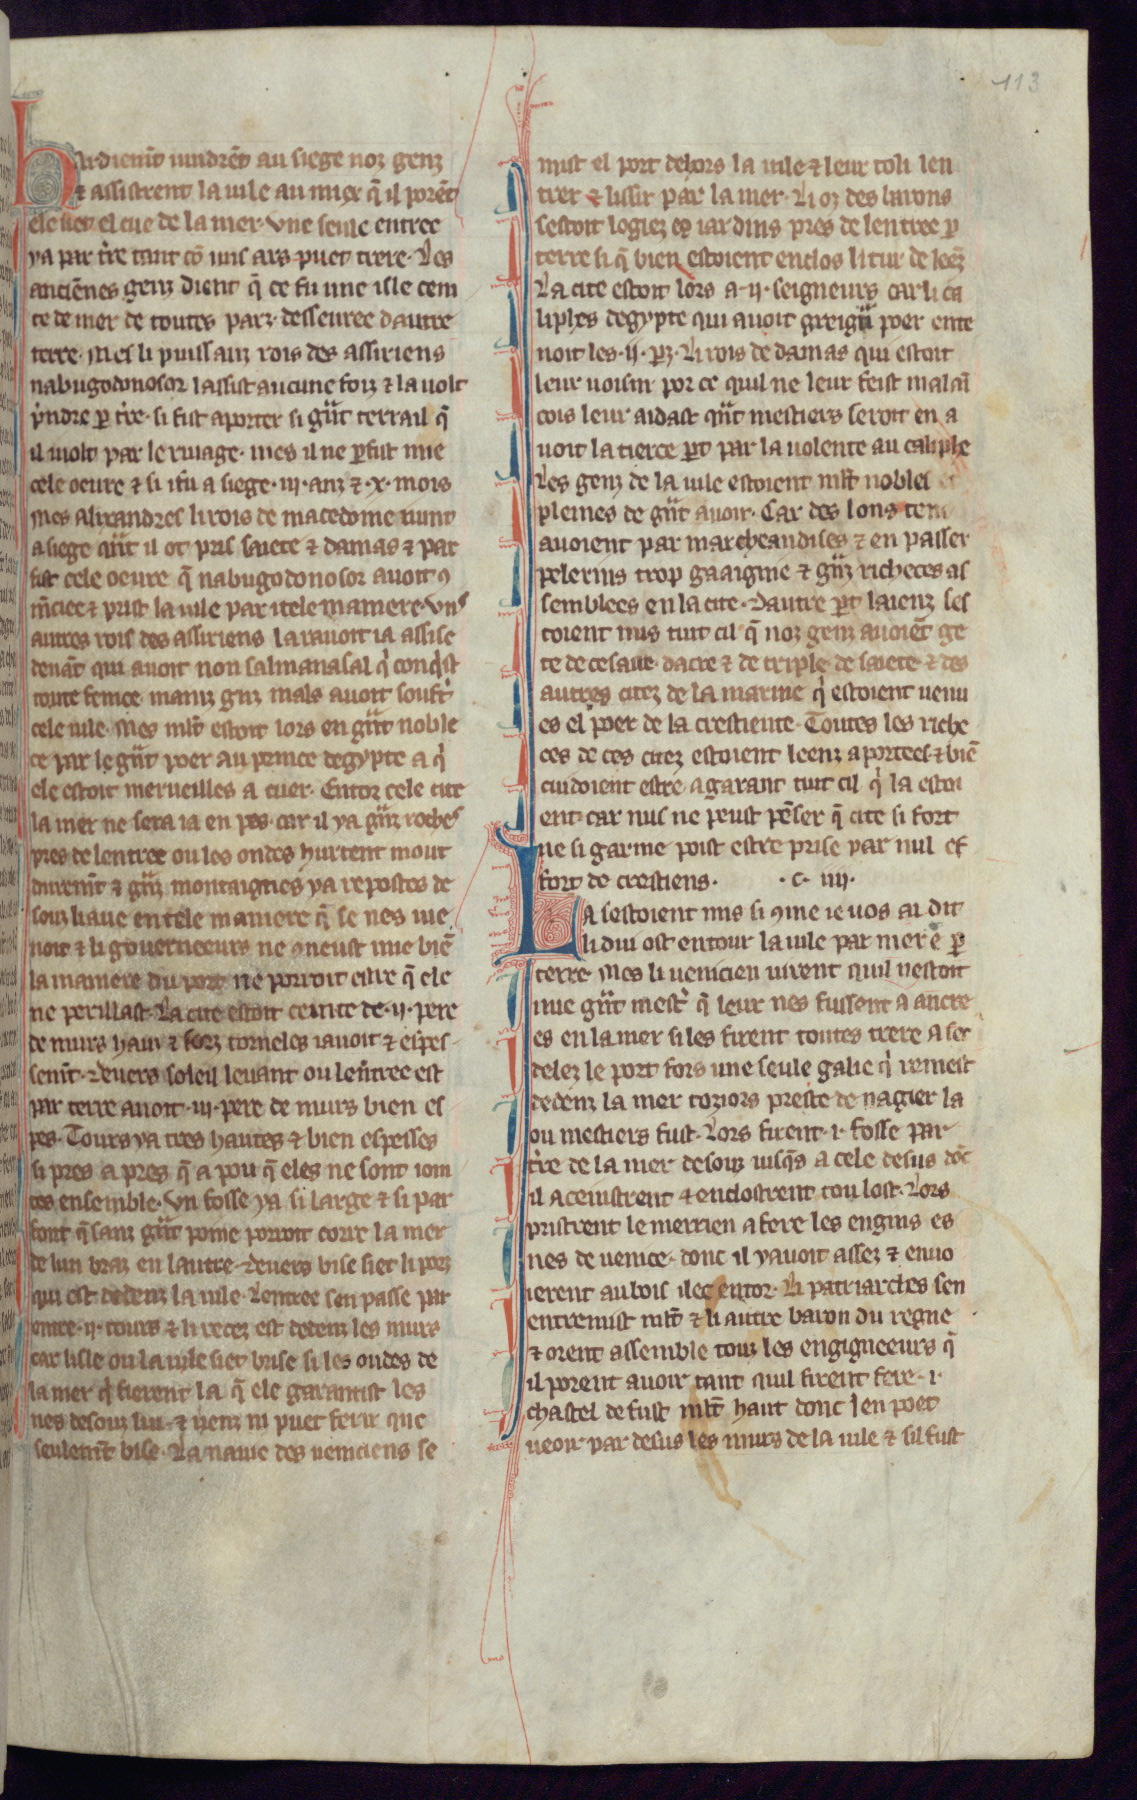 113
hardiemt̄ uindrēt au siege noz genz
⁊ assistrent la uile au miex q̄ il porēt
ele siet el cue de la mer. Vne seule entree
ya par tr̄e tant cō uns ars puet trere. Les
anciēnes genz dient q̄ ce fu une isle cein
te de mer de toutes parz desseuree dautre
terre. Mes li puissanz rois des assiriens
nabugodonosor lassist aucune foiz ⁊ la uolt
p̄ndre p̱ tr̄e. si fist aporter si gn̄t terrail q̄
il uiolt par le riuage. mes il ne p̱fist mie
cele oeure ⁊ si i fu a siege .iii. anz ⁊ .x. mois
Mes alixandres li rois de macedoine uint
a siege qn̄t il ot pris saiete ⁊ damas ⁊ par
fist cele oeure q̄ nabugodonosor auoit 9
m̄ciee ⁊ prist la uile par itele maniere. Vns
autres rois des assiriens la rauoit ia assise
deuāt qui auoit non salmanasal q̇ conq̇st
toute fenice. mainz gnz mals auoit soufr̄
cele uile. Mes ml̄t estoit lors en gn̄t noble
ce par le gn̄t poer au prince degypte a q̇
ele estoit merueilles a cuer. Entor cele cite
la mer ne sera ia en pes. car il ya gn̄z roches
pres de lentree ou les ondes hurtent mout
durem̄t ⁊ gn̄z montaignes ya repostes de
souz liaue en tele maniere q̄ se nes uie
noit ⁊ li gouerneeurs ne 9neust mie biē
la maniere du port ne porroit estre q̄ ele
ne perillast. La cite estoit ceinte de .ii. pere
de murs hauz ⁊ forz torneles iauoit ⁊ espes
sem̄t. Deuers soleil leuant ou len̄tree est
par terre auoit .iii. pere de murs bien es
pes. Tours ya tres hautes ⁊ bien espesses
si pres a pres q̄ a pou q̄ eles ne sont ioin
tes ensemble. Vn fosse ya si large ⁊ si par
font q̄ sanz gn̄t poine porroit corre la mer
de lun braz en lautre. Deuers bise siet li porz
qui est dedenz la uile. Lentree sen passe par
entre .ii. tours ⁊ li recez est dedenz les murs
car lisle ou la uile siet brise si les ondes de
la mer q̇ fierent la q̄ ele garantist les
nes desouz lui. ⁊ uenz ni puet ferir que
seulem̄t bise. La nauie des ueniciens se
mist el port dehors la uile ⁊ leur toli len
trer ⁊ lissir par la mer. Li oz des barons
sestoit logiez es iardins pres de lentree p̱
terre si q̄ bien estoient enclos li tur de leēz
La cite estoit lors a .ii. seigneurs car li ca
liphes degypte qui auoit greign̄ poer ente
noit les .ii. p̱z. Li rois de damas qui estoit
leur uoisin por ce quil ne leur feist mal ai
cois leur aidast qn̄t mestiers seroit en a
uoit la tierce p̱t par la uolente au caliphe
Les genz de la uile estoient ml̄t nobles et
pleines de gn̄t auoir. Car des lons tens
auoient par marcheandises ⁊ en passer
pelerins trop gaaignie ⁊ gn̄z richeces as
semblees en la cite. Dautre p̱t laienz ses
toient mis tuit cil q̄ noz genz auoiēt ge
te de cesaire. dacre ⁊ de triple de saiete ⁊ des
autres citez de la marine q̇ estoient uenu
es el poer de la crestiente. Toutes les riche
ces de ces citez estoient leenz aportees ⁊ biē
cuidoient estre a garant tuit cil q̇ la estoi
ent. car nus ne peust pēser q̄ cite si fort
ne si garnie poist estre prise par nul ef
fort de crestiens. .c. iiii.
La sestoient mis si 9me ie uos ai dit
li dui ost entour la uile par mer e p̱
terre. Mes li uenicien uirent quil nestoit
mie gn̄t mest̄ q̄ leur nes fussent a ancre
es en la mer si les firent toutes trere a sec
delez le port fors une seule galie q̇ remest
dedenz la mer toziors preste de nagier la
ou mestiers fust. Lors firent .i. fosse par
tr̄e de la mer desouz iusq̄s a cele desus dōt
il aceinstrent ⁊ enclostrent tou lost. Lors
pristrent le merrien a fere les engins es
nes de uenice. donc il yauoit assez ⁊ enuo
ierent au bois ilec entor. Li patriarches sen
entremist ml̄t ⁊ li autre baron du regne
⁊ orent assemble touz les engigneeurs q̄
il porent auoir tant quil firent fere .i.
chastel de fust ml̄t haut donc len poet
ueoir par desus les murs de la uile ⁊ sil fust